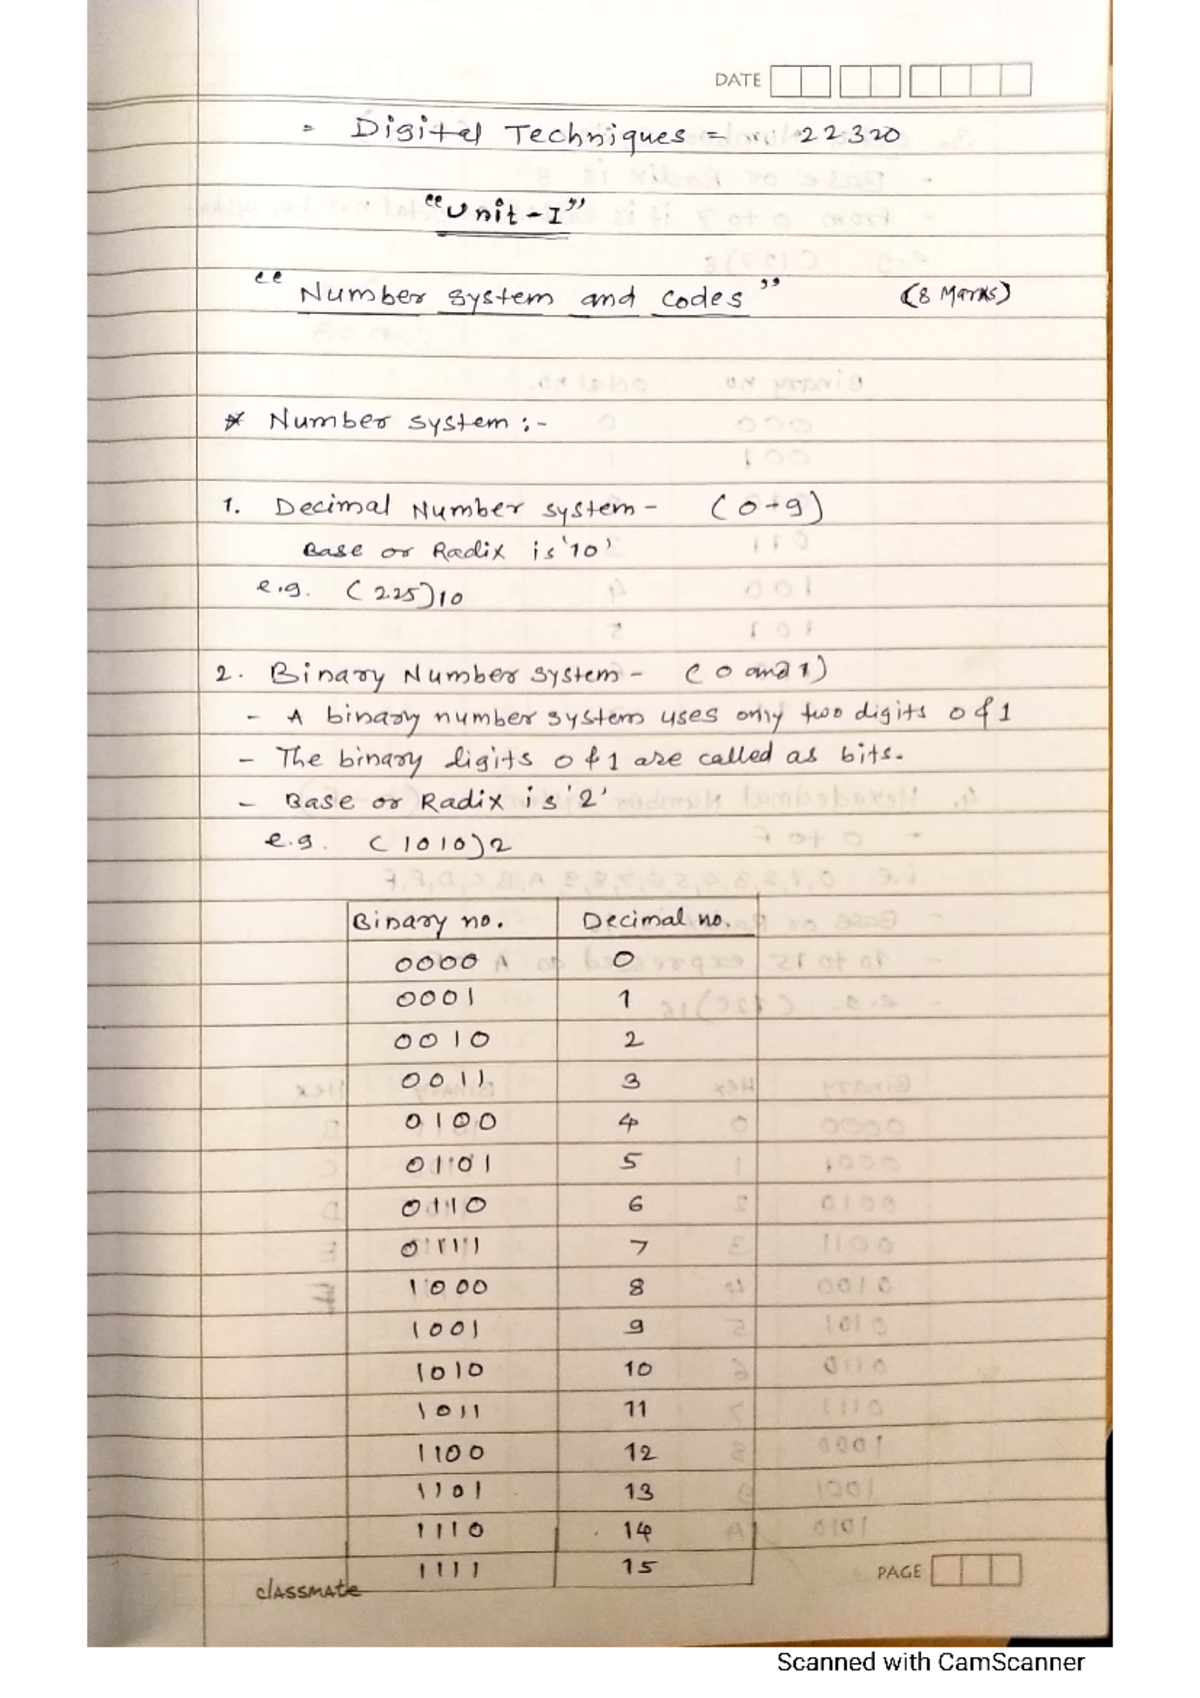 DATE
= Digital Techniques = 22320
"Unit-I"
"Number system and codes" (8 Marks)
* Number system :-
1. Decimal Number system - (0-9)
Base or Radix is '10'
e.g. (225)10
2. Binary Number system - (0 and 1)
- A binary number system uses only two digits 0 & 1
- The binary digits 0 & 1 are called as bits.
- Base or Radix is '2'
e.g. (1010)2
Binary no. Decimal no.
0000 0
0001 1
0010 2
0011 3
0100 4
0101 5
0110 6
0111 7
1000 8
1001 9
1010 10
1011 11
1100 12
1101 13
1110 14
1111 15
classmate PAGE
Scanned with CamScanner